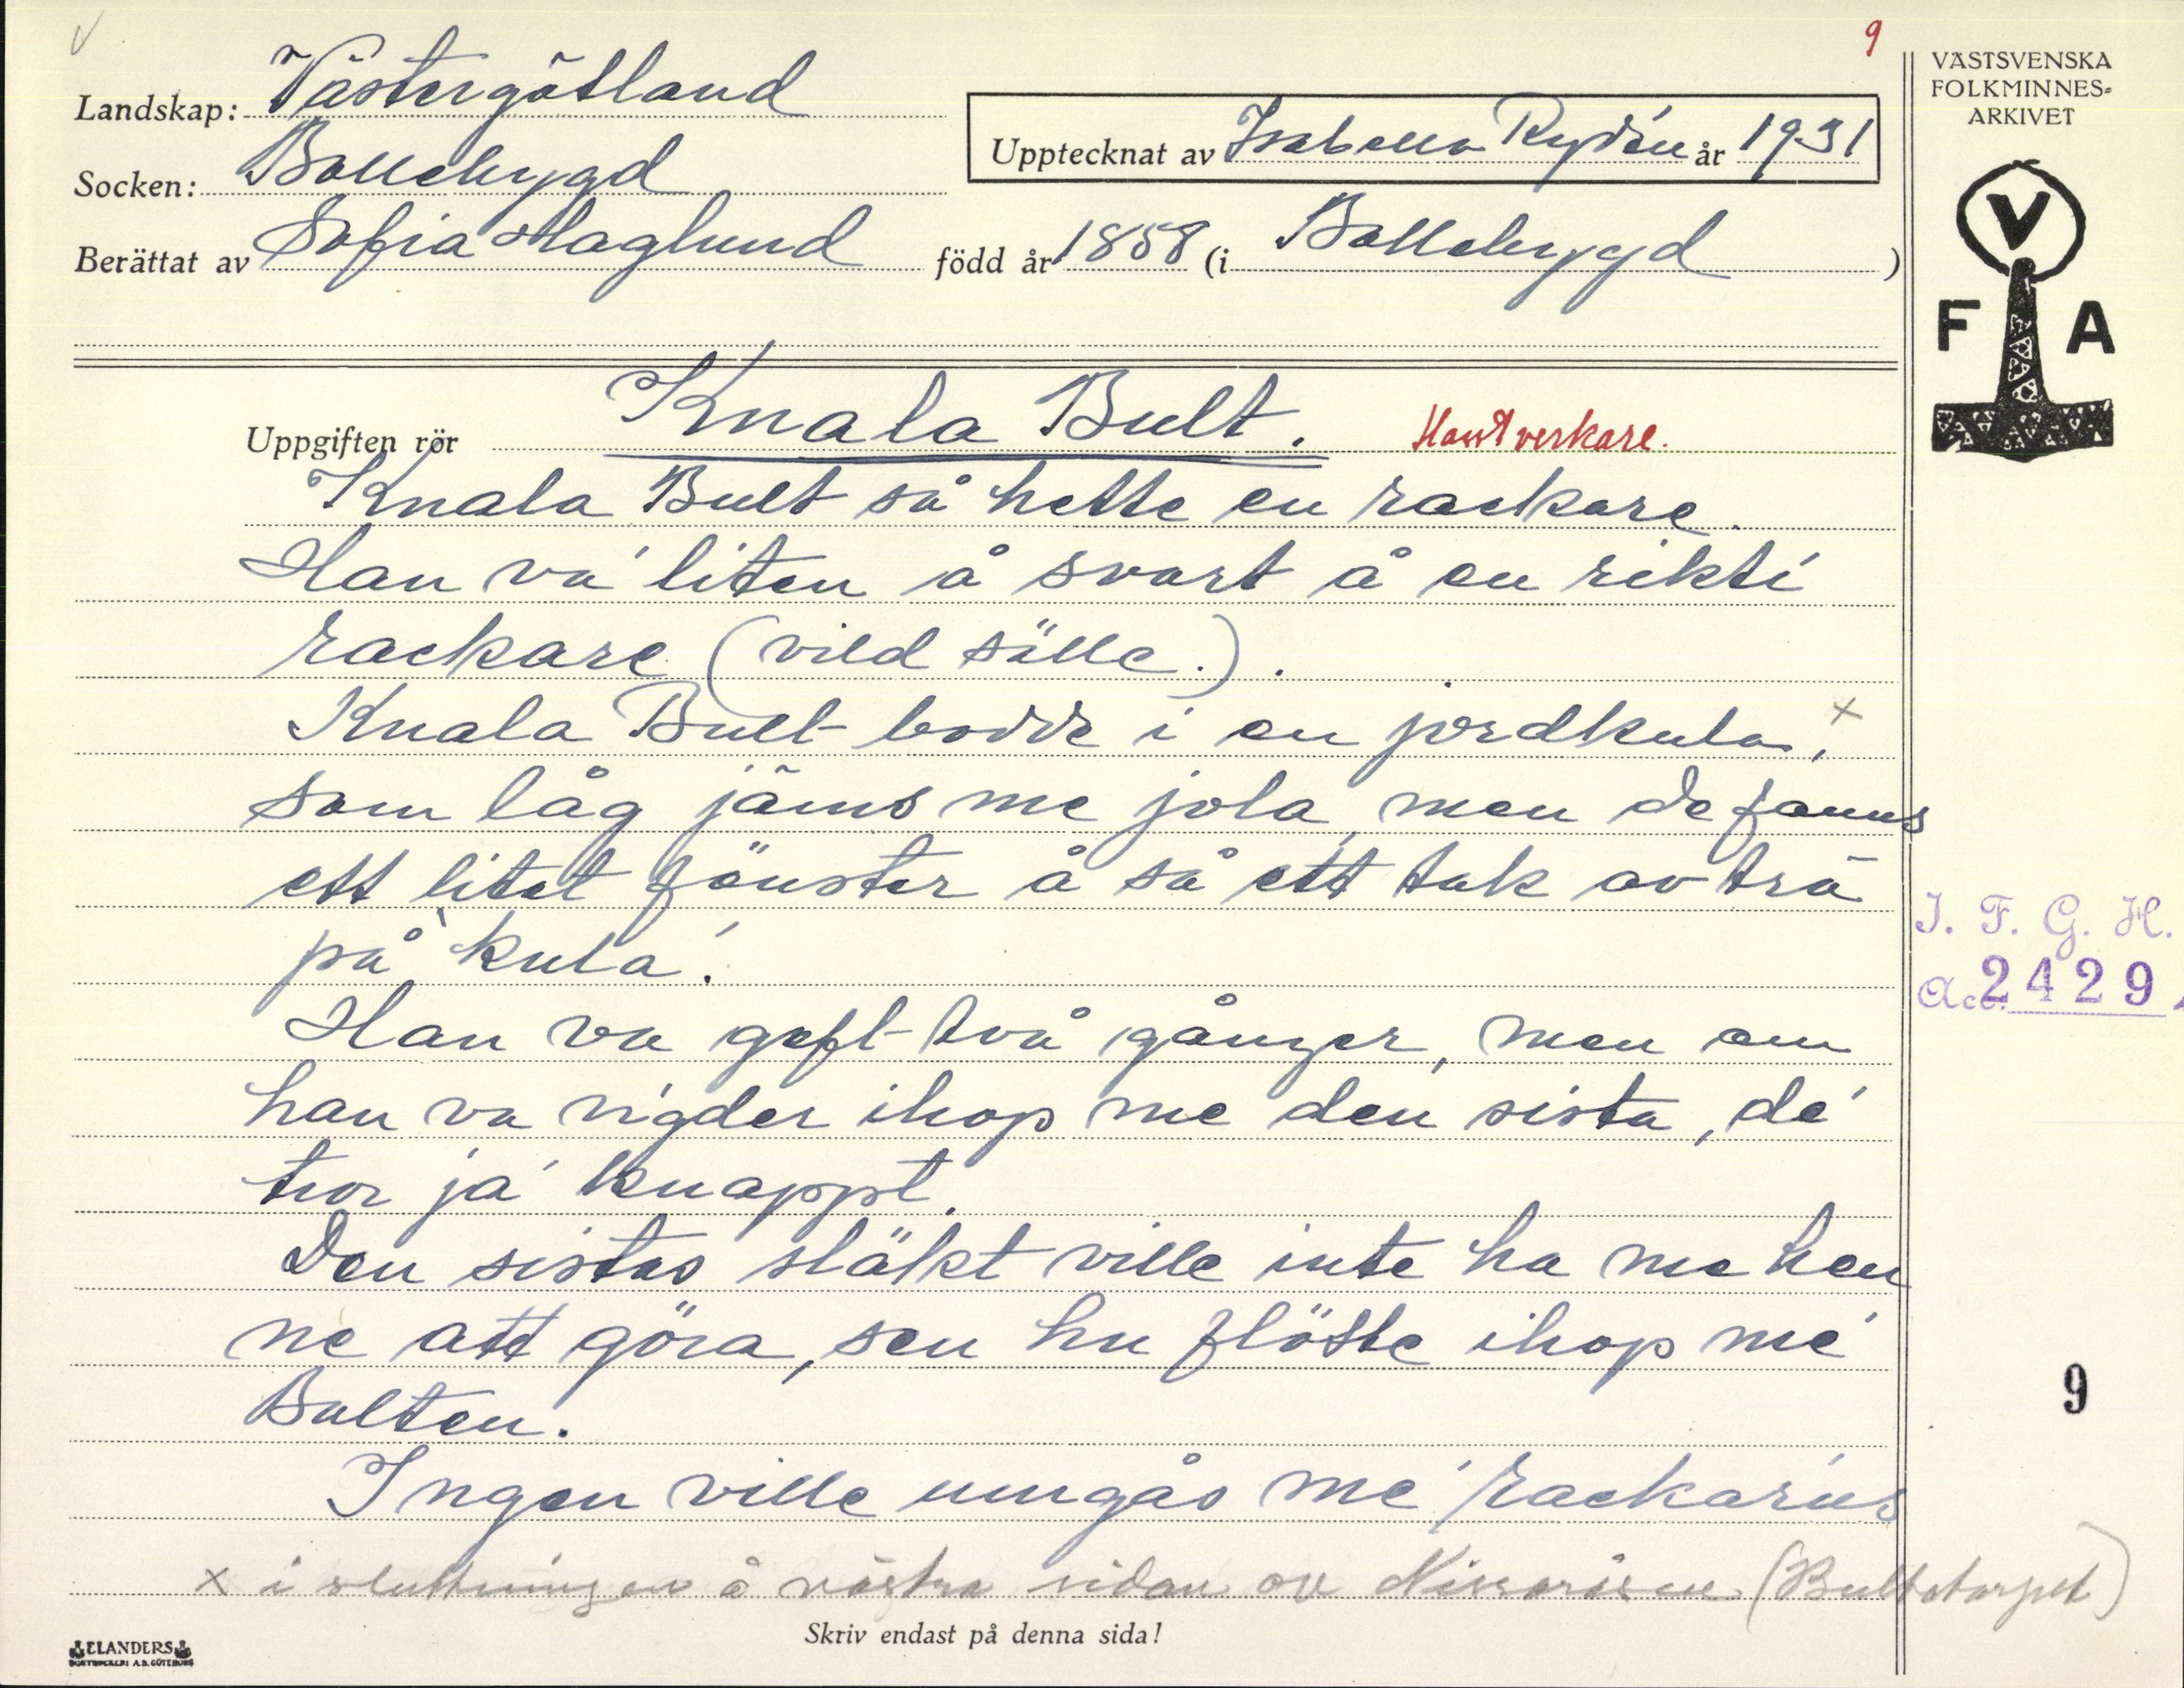 9
VÄSTSVENSKA
FOLKMINNES-
ARKIVET
V
F A
Landskap: Västergötland
Upptecknat av Isabella Rydén år 1931
Socken: Bollebygd
Berättat av Sofia Haglund född år 1858 (i Bollebygd )
Uppgiften rör Knala Bult. Hantverkare.
Knala Bult så hette en rackare.
Han va' liten å svart å en rikti
rackare (vild sälle.).
Knala Bult bodde i en jordkula, x
som låg jäms me jola, men de fanns
ett litet fönster å så ett tak av trä
på kula'.
Han va geft två gånger, men om
han va vigder ihop me den sista, de'
tror ja' knappt.
Den sistas släkt ville inte ha me hen
ne att göra, sen hu flötte ihop me'
Bulten.
Ingen ville umgås me' rackarns
x i sluttningen å västra sidan av (Bultatorpet)
Skriv endast på denna sida!
I. F. G. H.
Acc. 2429
9
ELANDERS
BOKTRYCKERI A.B. GÖTEBORG